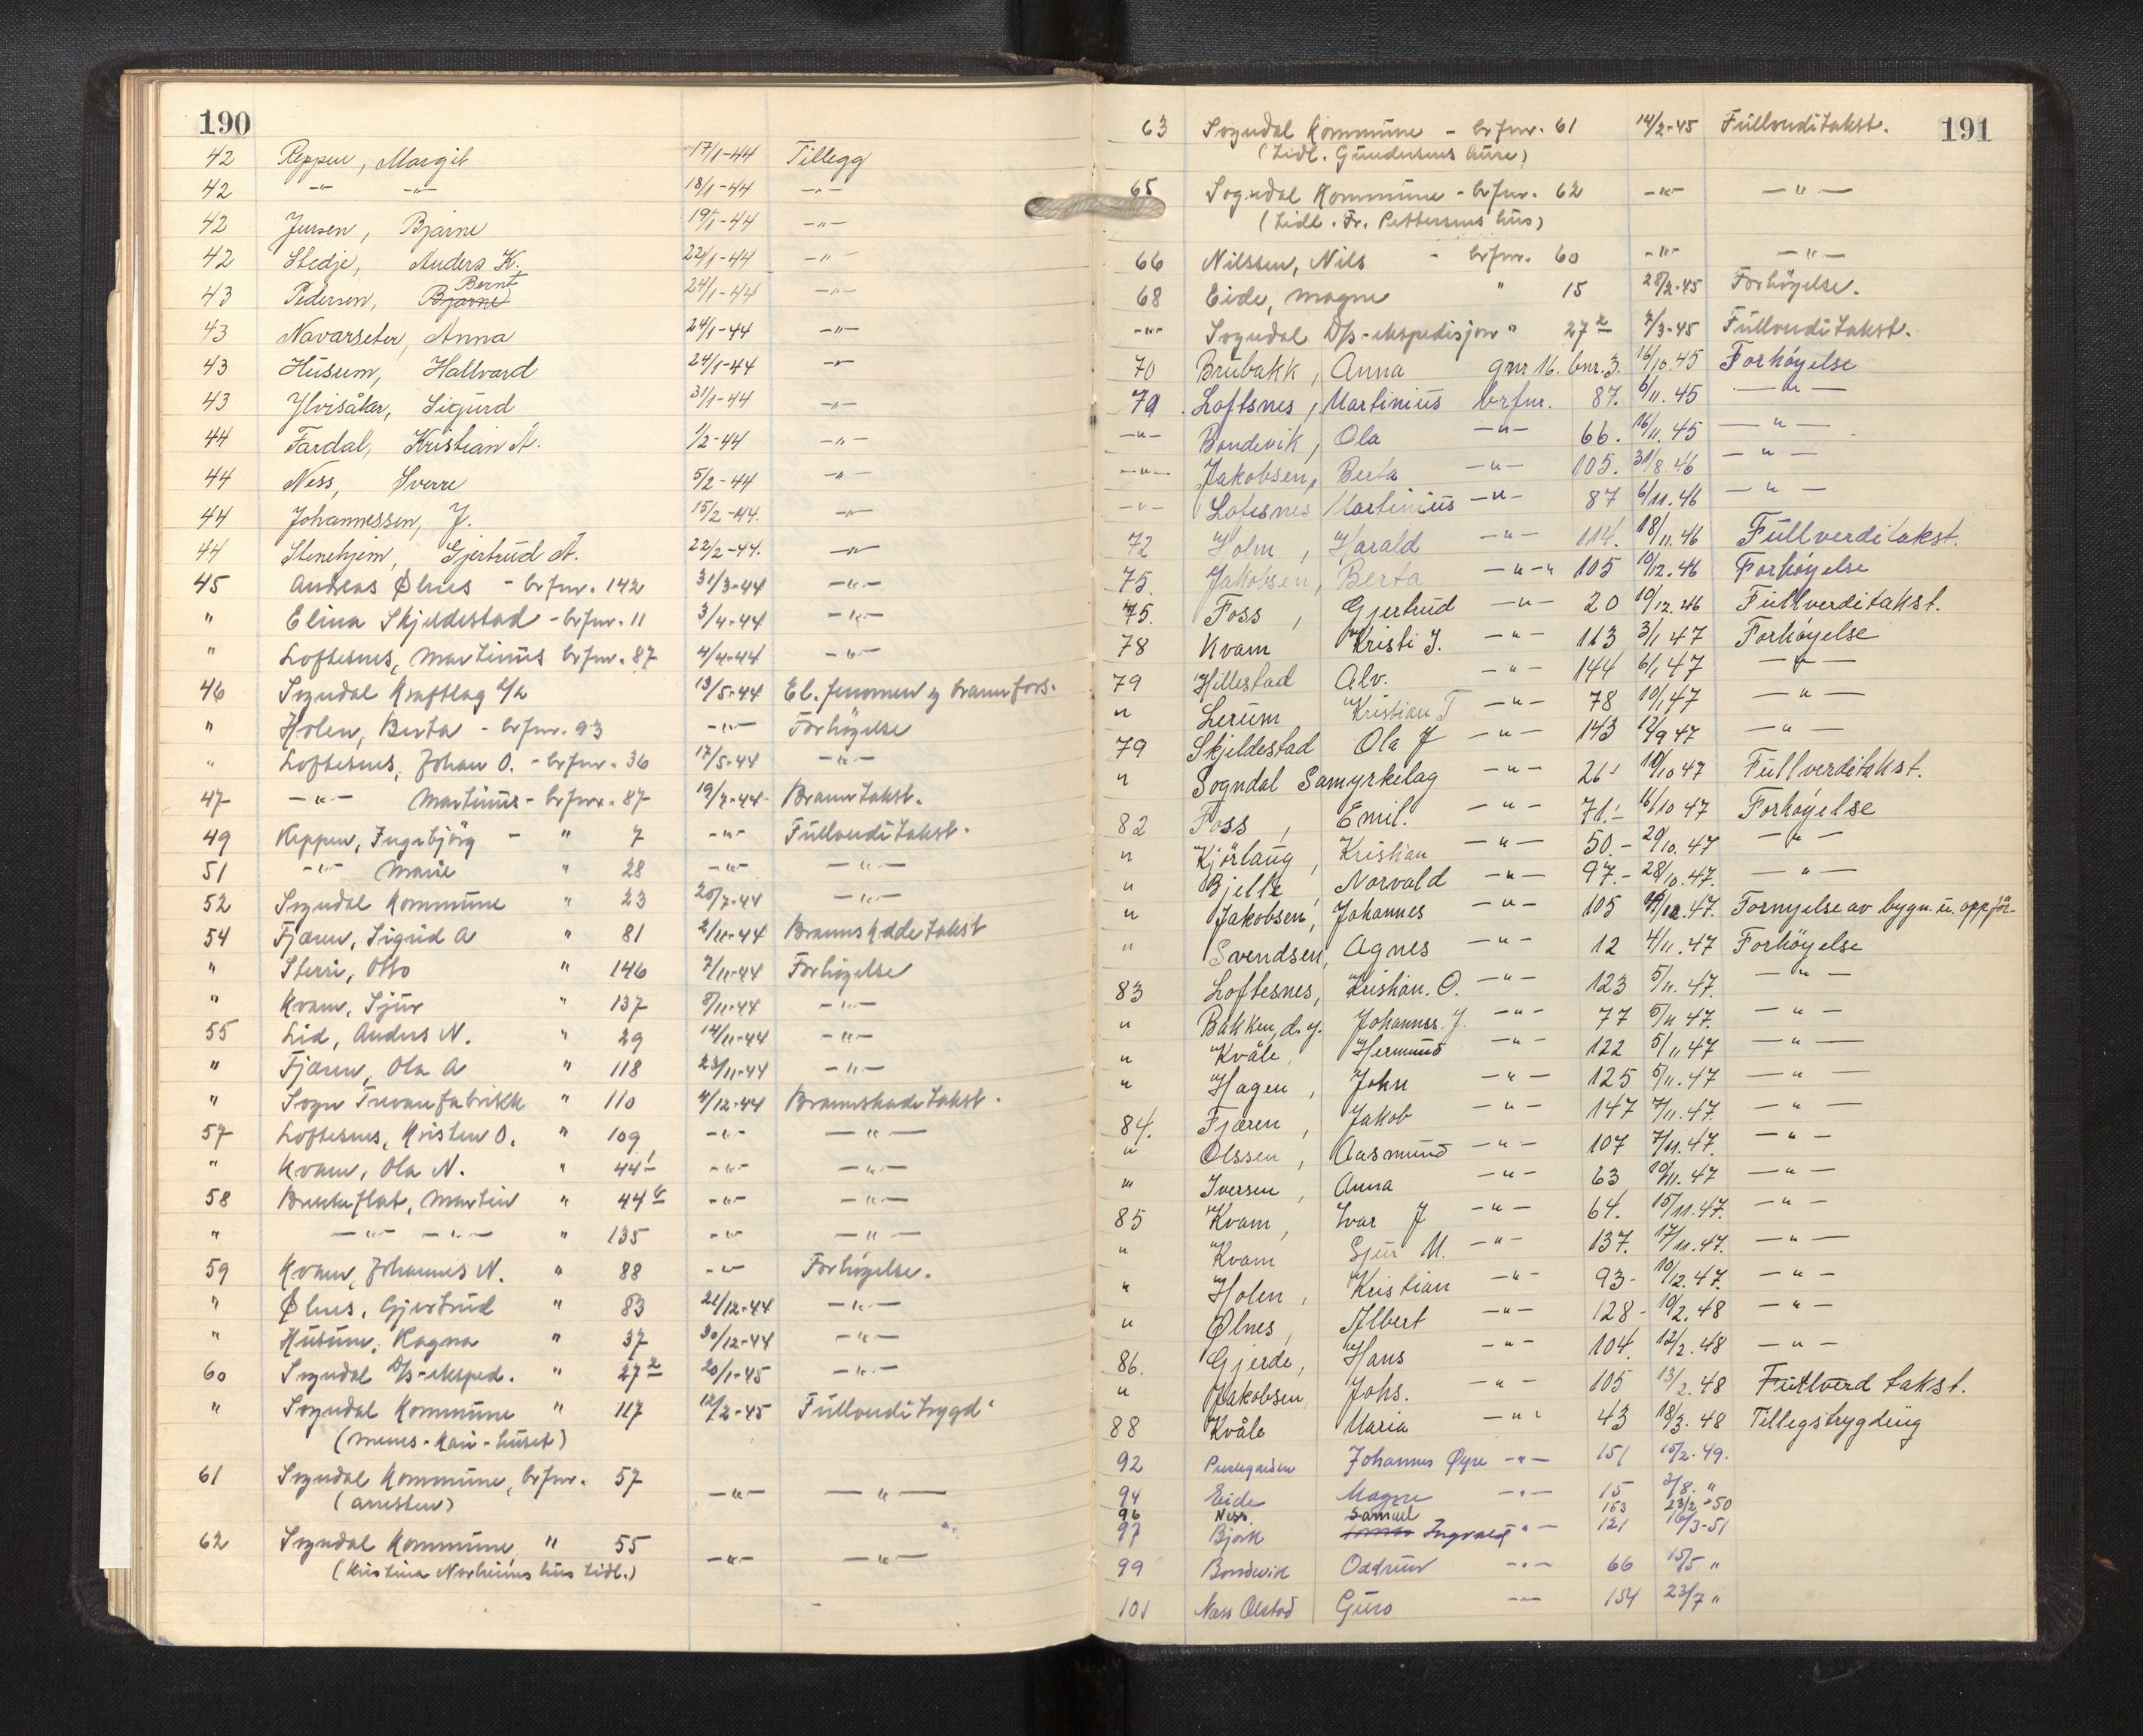 190
42 Reppen, Margit 17/1-44 Tillegg
42 -"- -"- 18/1-44 -"-
42 Jensen, Bjarne 19/1-44 -"-
42 Stedje, Anders K. 22/1-44 -"-
Bernt
43 Pedersen, Bjarne 24/1-44 -"-
43 Navarseter, Anna 24/1-44 -"-
43 Husum, Hallvard 24/1-44 -"-
43 Ylvisåker, Sigurd 31/1-44 -"-
44 Fardal, Kristian A. 1/2-44 -"-
44 Ness, Sverre 5/2-44 -"-
44 Johannessen, J. 15/2-44. -"-
44 Stenehjem, Gjertrud A. 22/2-44. -"-
45 Andreas Ølnes - brfnr. 142 31/3-44 -"-
" Elina Skjeldestad - brfnr. 11 3/4-44 -"-
" Loftesnes, Martinus brfnr. 87 4/4-44 -"-
46 Sogndal Kraftlag A/L 13/5-44 El. fenomen og brannfors.
" Holen, Berta - brfnr. 93 -"- Forhöyelse
" Loftesnes, Johan O. - brfnr. 36 17/5-44 -"-
47 -"- Martinus - brfnr. 87 19/7-44 Branntakst.
49 Reppen, Ingebjörg - " 7 -"- Fullverditakst.
51 -"- Marie " 28 -"- -"-
52 Sogndal Kommune " 23 20/7-44 -"-
54 Fjæren, Sigrid A " 81 2/11-44 Brannskadetakst
" Sterri, Otto " 146 7/11-44 Forhöyelse
" Kvam, Sjur " 137 8/11-44 -"-
55 Lid, Anders N. " 29 14/11-44 -"-
" Fjæren, Ola A " 118 23/11-44 -"-
" Sogn Trevarefabrikk " 110 4/12-44 Brannskadetakst.
57 Loftesnes, Kristen O. " 109 -"- -"-
" Kvam, Ola N. " 44 -"- -"-
58 Brekkeflat, Martin " 44 -"- -"-
" -"- -"- " 135 -"- -"-
59 Kvam, Johannes N. " 88 -"- Forhöyelse.
" Ølnes, Gjertrud " 83 21/12-44 -"-
" Husum, Ragna " 37 30/12-44 -"-
60 Sogndal D/s-eksped. " 27 20/1-45 -"-
" Sogndal Kommune " 117 12/2-45 Fullverditrygd
61 Sogndal Kommune, brfnr. 57 -"- -"-
(arresten)
62 Sogndal Kommune, " 55 -"- -"-
(Kristina Norheims hus tidl.)
191
63 Sogndal Kommune - brfnr. 61 14/2-45 Fullverditakst.
(tidl. Gundersens huse)
65 Sogndal Kommune - brfnr. 62 -"- -"-
(tidl. Fr. Pettersens hus)
66 Nilssen, Nils - brfnr. 60 -"- -"-
68 Eide, Magne " 15 28/2-45 Forhöyelse.
-"- Sogndal D/s-ekspedisjon " 27 7/3-45 Fullverditakst.
70 Brubakk, Anna gnr 16. bnr. 3. 16/10.45 Forhöyelse
70 Loftsnes, Martinius brfnr. 87. 6/11.45 -"-
-"- Bondevik, Ola -"- 66. 16/11.45 -"-
-"- Jakobsen, Berta -"- 105. 31/8.46 -"-
-"- Lotesnes Martinius -"- 87 6/11.46 -"-
72 Holm, Harald -"- 114. 18/11.46 Fullverditakst.
75. Jakobsen, Berta -"- 105 10/12.46 Forhöyelse
75. Foss, Gjertrud -"- 20 10/12.46 Fullverditakst.
78 Kvam Kristi J. -"- 113 3/1 47 Forhöyelse
79 Hillestad Alv. -"- 144 6/1 47 -"-
" Lerum Kristian T -"- 78 10/1 47 -"-
79 Skjeldestad Ola J -"- 143 12/9 47 -"-
" Sogndal Samyrkelag -"- 26 10/10 47 Fullverditakst.
82 Foss, Emil. -"- 71.- 16/10 47 Forhöyelse
" Kjörlaug, Kristian -"- 50.- 20/10.47 -"-
" Bjelle, Norvald -"- 97.- 28/10.47. -"-
" Jakobsen, Johannes -"- 105 .47. Fornyelse av bygn. u. oppför.
" Svendsen, Agnes -"- 12 4/11.47 Forhöyelse
83 Loftesnes, Kristian. O. -"- 123 5/11.47. -"-
" Bakken, d.y. Johannes. J. -"- 77 5/11 47. -"-
" Kvåle, Hermund -"- 122 5/11 47 -"-
" Hagen, John -"- 125 5/11.47 -"-
84. Fjæren, Jakob -"- 147 7/11.47. -"-
" Olssen, Aasmund -"- 107 7/11.47. -"-
" Iversen, Anna -"- 63 10/11.47 -"-
85 Kvam, Ivar J -"- 64. 15/11.47. -"-
" Kvam Sjur M. -"- 137. 17/11.47. -"-
" Holen, Kristian -"- 93- 10/12.47. -"-
" Ølnes, Albert -"- 128- 10/2.48 -"-
86. Gjerde, Hans -"- 104. 12/2.48 -"-
" Jakobsen, Johs. -"- 105 13/2.48 Fullverd takst.
88 Kvåle Maria -"- 43 18/3.48 Tillegstrygding
92 Johannes Øyre -"- 151 15/2.49.
94 Eide Magne -"- 15 3/8. "
96 Ness. Samuel 153 23/2-50
97 Bjørk Ingvald -"- 121 16/3-51
99 Bondevik Oddrun -"- 66 15/5 "
101 Næss Ølstad Guro -"- 154 23/7 "